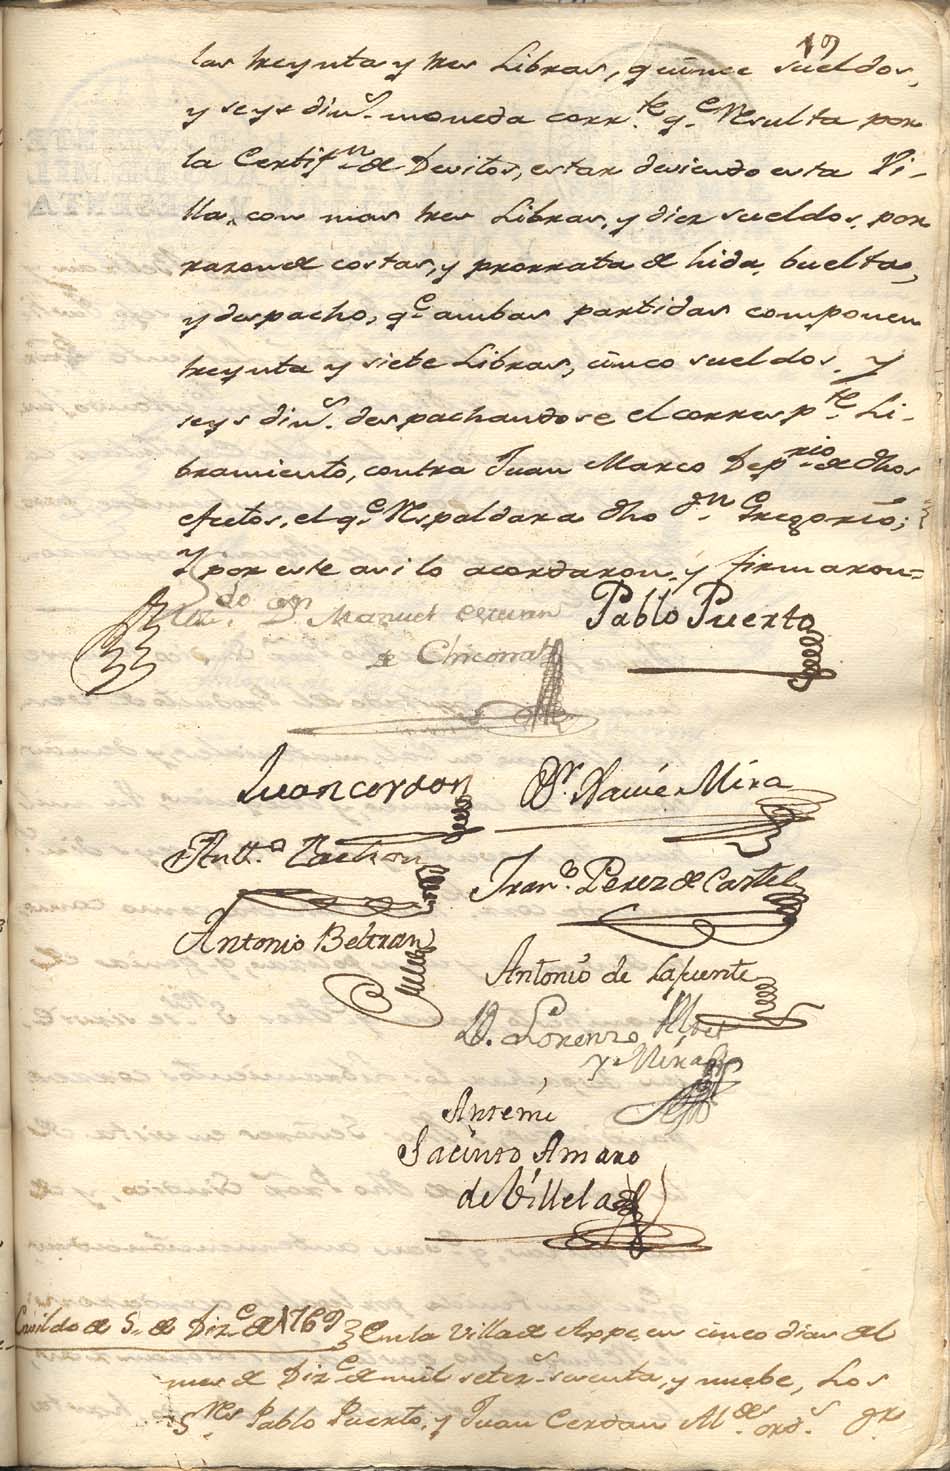 19
las treynta y tres Libras, quince sueldos,
y seys din.s moneda corr.te q.e Resulta por
la Certif.n de Devitos, estar deviendo esta Vi-
lla, con mas tres Libras, y diez sueldos, por
razon de costas, y prorrata de hida, buelta,
y despacho, q.e ambas partidas componen
treynta y siete Libras, cinco sueldos, y
seys din.s despachandose el corresp.te Li-
bramiento, contra Juan Marco Dep.rio de dhos
efectos, el q.e Respaldara dho D.n Gregorio;
Y por este asi lo acordaron, y firmaron=
D.n Manuel
Pablo Puerto
de Chicomat
Juan cerdan
D.r Xavie Mira
Ant.o
Fran.co Perez de Castel
Antonio Beltran
Antonio de Lapuente
D. Lorenzo
y Mira
Antemi
Jacinto Amaro
de Villela
Cavildo de 5 de Diz.e de 1769
En la Villa de Aspe, en cinco dias del
mes de Diz.e de mil setez.s sesenta, y nuebe, Los
S.res Pablo Puerto, y Juan Cerdan Al.des ord.s